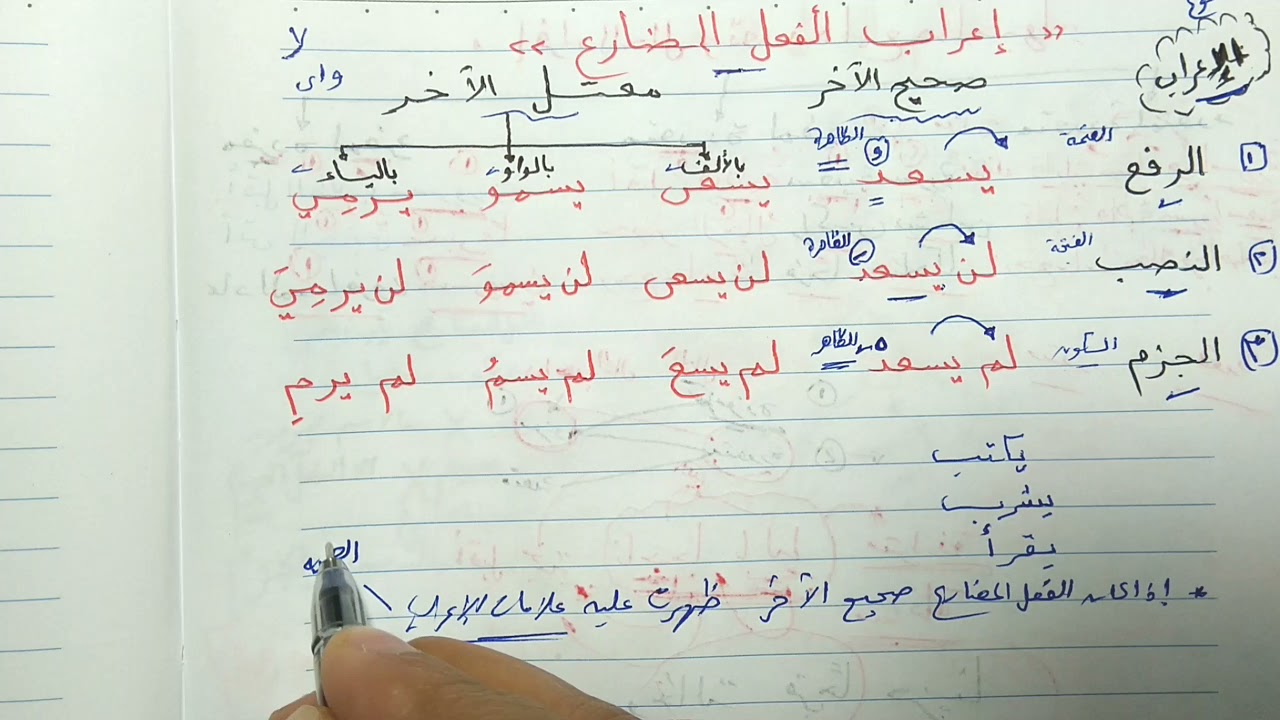 « إعراب الفعل المضارع »
لا
نوع
الإعراب
صحيح الآخر
معتل الآخر
واى
بالألف
بالواو
بالياء
١ الرفع الضمة يسعد الظاهرة يسعى يسمو يرمي
٢ النصب الفتحة لن يسعد الظاهرة لن يسعى لن يسموَ لن يرميَ
٣ الجزم السكون لم يسعد الظاهر لم يسعَ لم يسمُ لم يرمِ
يكتب
يشرب
يقرأ
* إذا كان الفعل المضارع صحيح الآخر ظهرت عليه علامات الإعراب